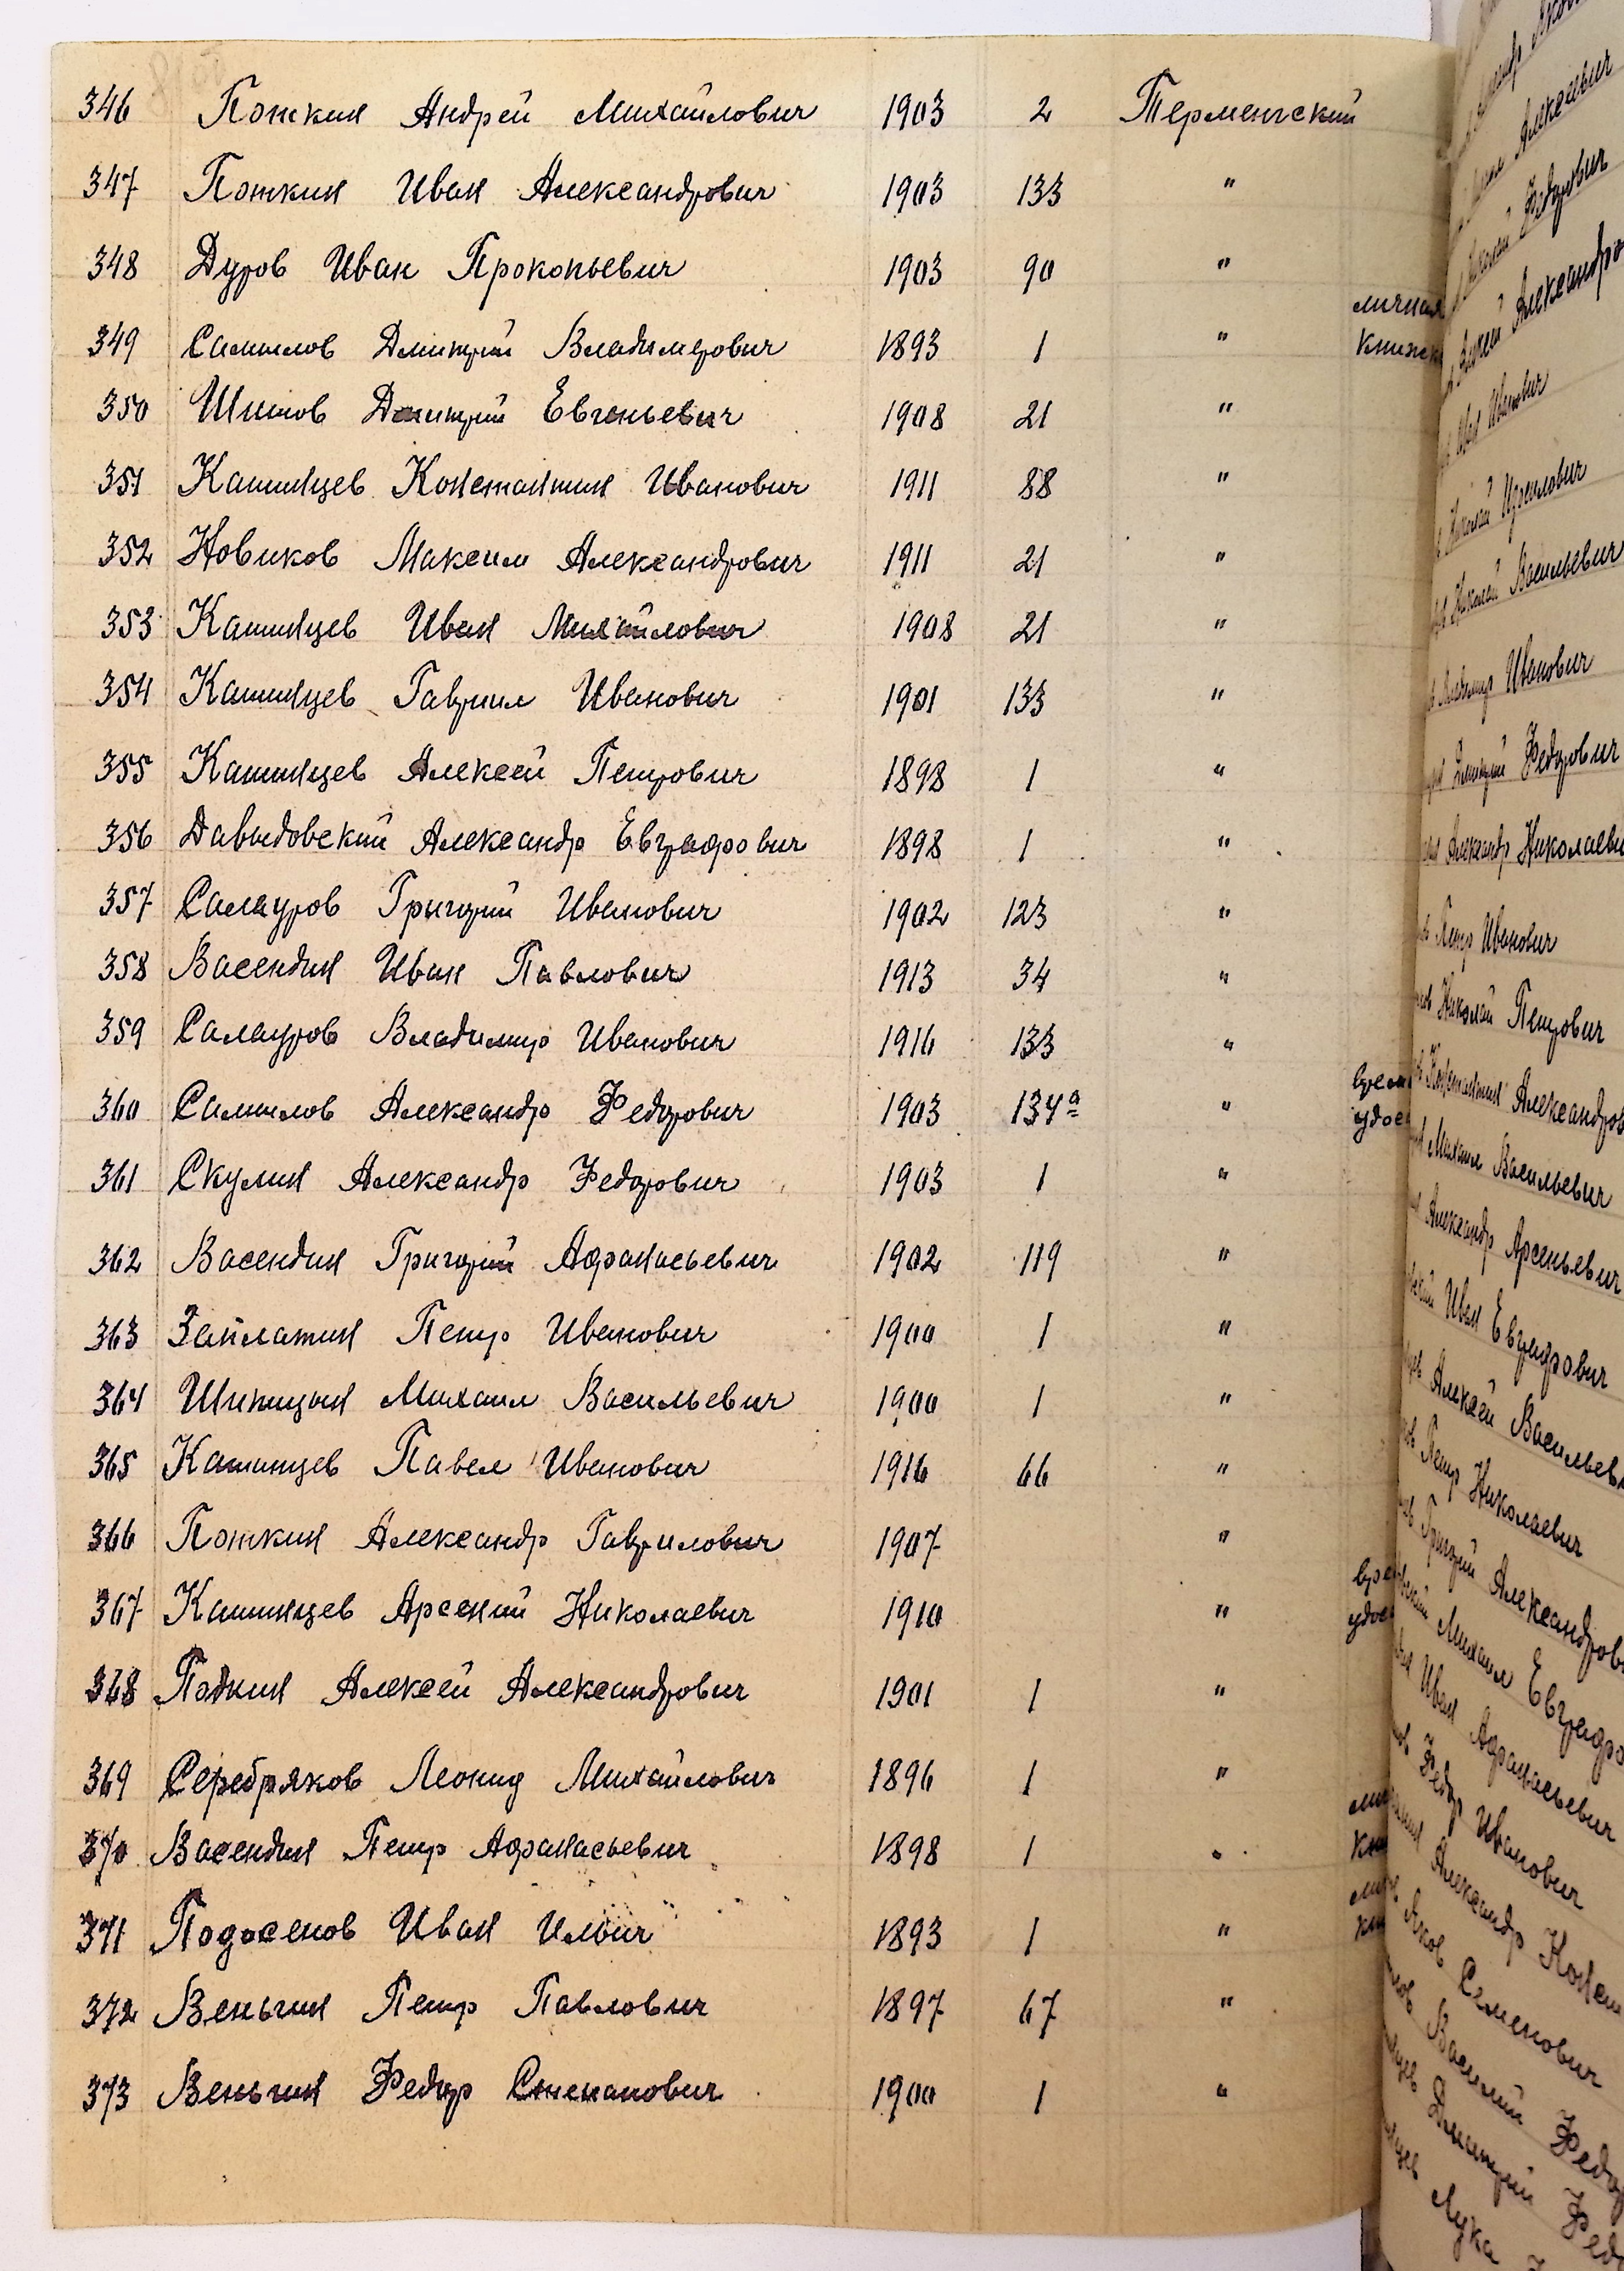 346 Поткин Андрей Михайлович 1903 2 Терменгский
347 Поткин Иван Александрович 1903 133 "
348 Дуров Иван Прокопьевич 1903 90 "
личная
349 Самылов Дмитрий Владимирович 1893 1 " книжк
350 Шилов Дмитрий Евгеньевич 1908 21 "
351 Кашинцев Константин Иванович 1911 88 "
352 Новиков Максим Александрович 1911 21 "
353 Кашинцев Иван Михайлович 1908 21 "
354 Кашинцев Гаврил Иванович 1901 133 "
355 Кашинцев Алексей Петрович 1898 1 "
356 Давыдовский Александр Евграфович 1898 1 "
357 Самауров Григорий Иванович 1902 123 "
358 Васендин Иван Павлович 1913 34 "
359 Самауров Владимир Иванович 1916 133 "
врем
360 Самылов Александр Федорович 1903 134а " удос
361 Скулин Александр Федорович 1903 1 "
362 Васендин Григорий Афанасьевич 1902 119 "
363 Заплатин Петр Иванович 1900 1 "
364 Шипицын Михаил Васильевич 1900 1 "
365 Кашинцев Павел Иванович 1916 66 "
366 Поткин Александр Гаврилович 1907 "
вре
367 Кашинцев Арсений Николаевич 1910 " удос
368 Подкин Алексей Александрович 1901 1 "
369 Серебряков Леонид Михайлович 1896 1 "
370 Васендин Петр Афанасьевич 1898 1 " кни
371 Подосенов Иван Ильич 1893 1 " кни
372 Веньгин Петр Павлович 1897 67 "
373 Веньгин Федор Степанович 1900 1 "
Алексеевич
Федорович
Александро
Иванович
Николай
Николай Васильевич
Владимир Иванович
Дмитрий Федорович
Александр Николаеви
Петр Иванович
Николай Петрович
Константин Александров
Михаил Васильевич
Александр Арсеньевич
Иван Евграфович
Алексей Васильев
Петр Николаевич
Григорий Александров
Михаил Евграфо
Иван Афанасьевич
Федор Иванович
Александр Конст
Яков Семенович
Василий Федор
Дмитрий Фед
Лука